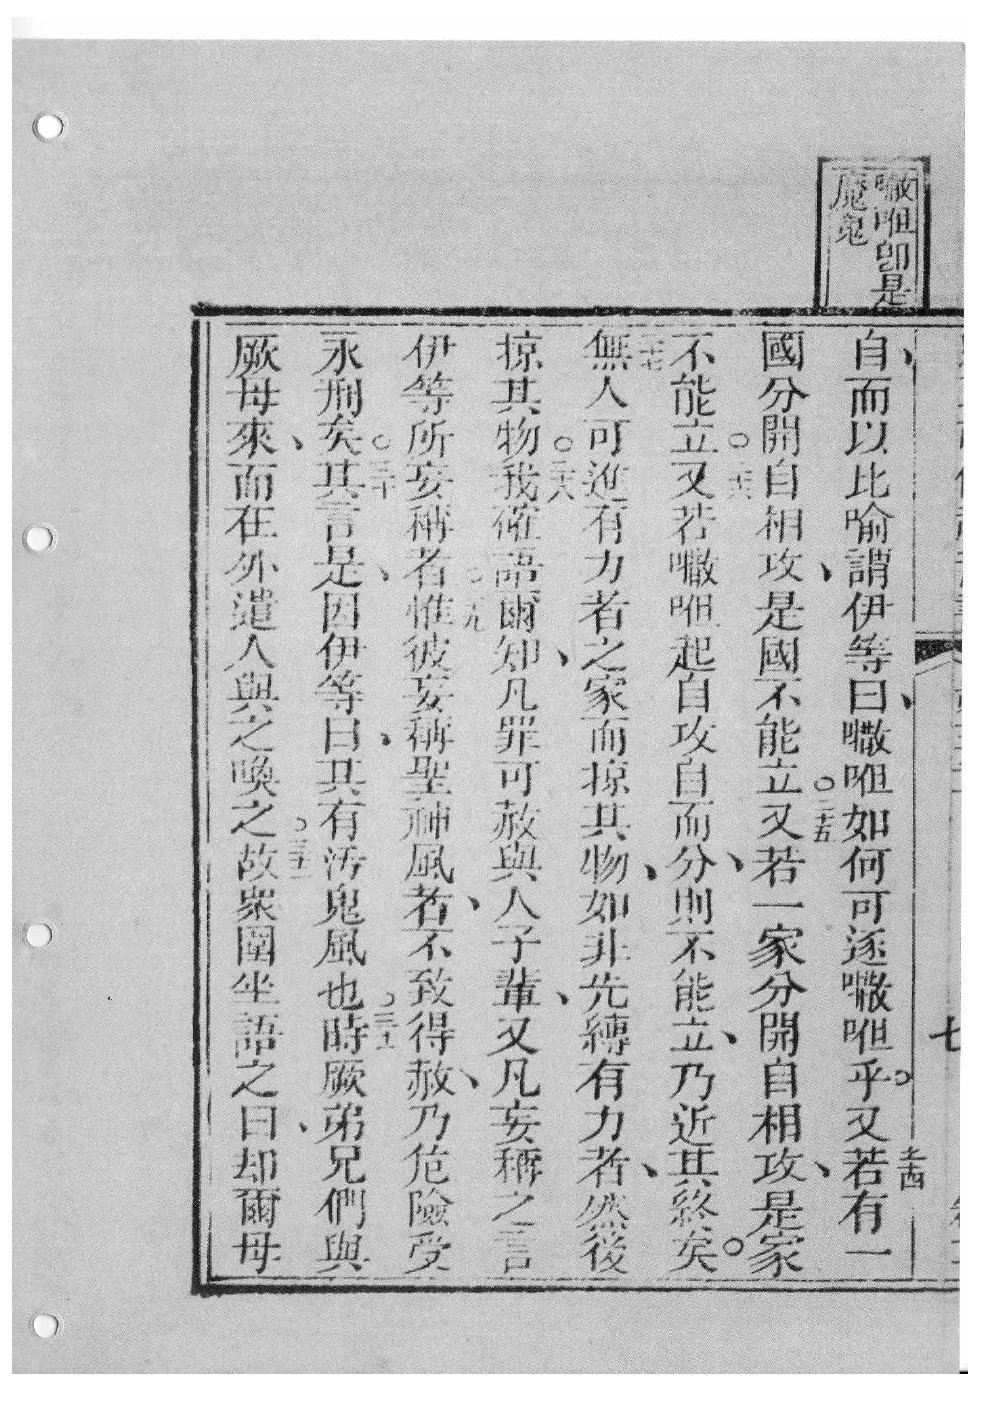 㘔呾卽是
魔鬼
自而以比喻謂伊等曰、㘔呾如何可逐㘔呾乎。又若有一
國分開自相攻、是國不能立○又若一家分開自相攻、是家
不能立○又若㘔呾起自攻自而分、則不能立、乃近其終矣○
無人可進有力者之家而掠其物、如非先縛有力者、然後
掠其物○我確語爾知、凡罪可赦與人子輩、又凡妄稱之言
伊等所妄稱者○惟彼妄稱聖神風者、不致得赦、乃危險受
永刑矣○其言是、因伊等曰、其有污鬼風也○時厥弟兄們與
厥母來、而在外遣人與之喚之○故衆圍坐語之曰、却爾母
二十四
二十五
二十六
二十七
二十八
二十九
三十
三十一
三十二
七